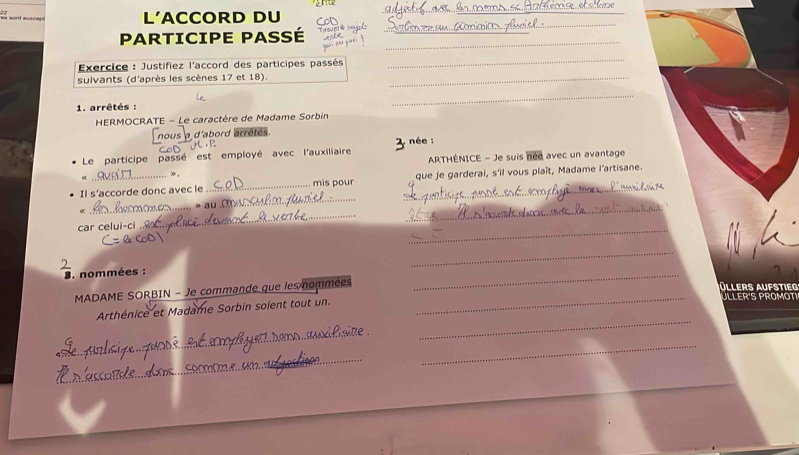 L'ACCORD DU
PARTICIPE PASSÉ
COD
Exercice : Justifiez l'accord des participes passés
suivants (d'après les scènes 17 et 18).
le
1. arrêtés :
HERMOCRATE – Le caractère de Madame Sorbin
nous a d'abord arrêtés.
COD
• Le participe passé est employé avec l'auxiliaire
« avoir ».
• Il s'accorde donc avec le COD mis pour
« les hommes » au masculin pluriel.
car celui-ci est placé devant le verbe
(= le COD)
2. nommées :
MADAME SORBIN – Je commande que les nommées
Arthénice et Madame Sorbin soient tout un.
Le participe passé est employer sans auxiliaire.
Il s'accorde donc comme un
adjectif avec les noms « Arthénice et Mme
Sorbin » au féminin pluriel.
3. née :
ARTHÉNICE – Je suis née avec un avantage
que je garderai, s'il vous plaît, Madame l'artisane.
Le participe passé est employé avec l'auxiliaire
être. Il s'accorde donc avec le
ÜLLERS AUFSTIEG
ULLER'S PROMOTI